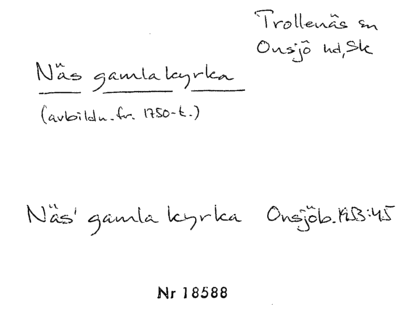 Trollenäs sn
Onsjö hd, Sk
Näs gamla kyrka
(avbildn. fr. 1750-t.)
Näs' gamla kyrka Onsjöb. 1953:45
Nr 18588